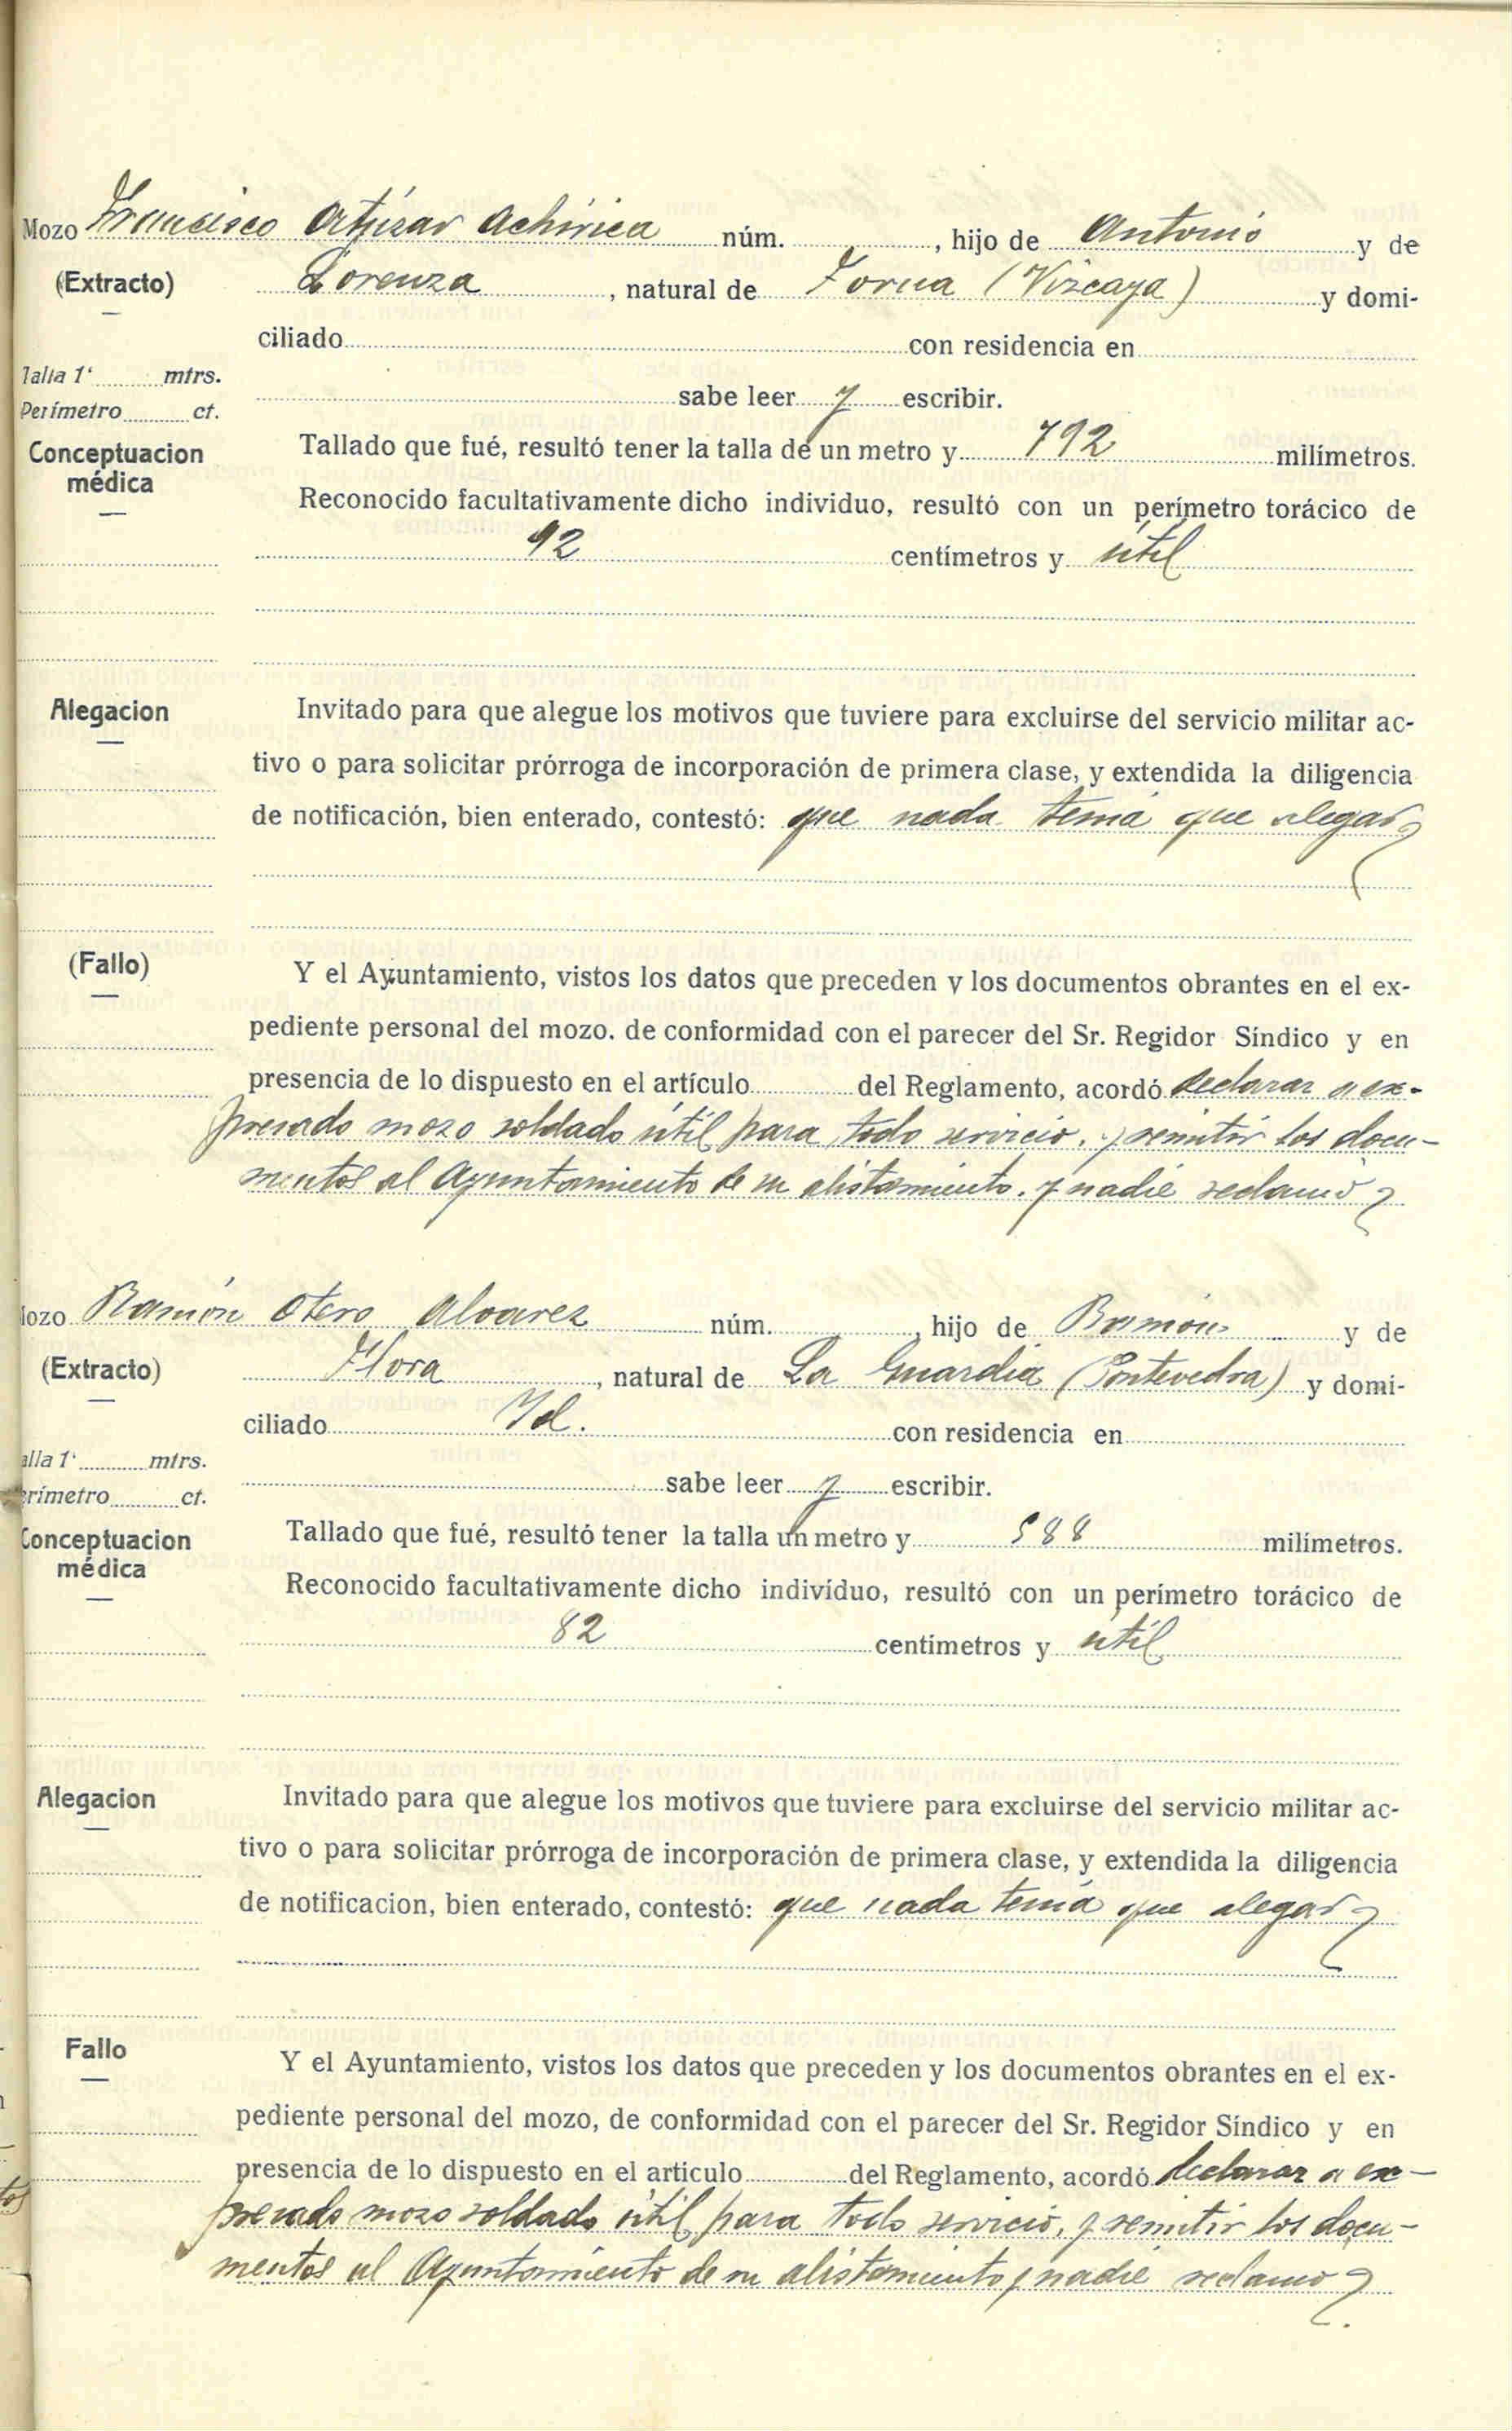 Mozo Francisco Artízar Achirica núm. , hijo de Antonio y de
(Extracto) Lorenza , natural de Zorna (Vizcaya) y domi-
ciliado con residencia en
Talla 1‘ mtrs.
sabe leer y escribir.
Perímetro ct.
Conceptuacion médica
Tallado que fué, resultó tener la talla de un metro y 792 milímetros.
Reconocido facultativamente dicho individuo, resultó con un perímetro torácico de
92 centímetros y útil
Alegacion
Invitado para que alegue los motivos que tuviere para excluirse del servicio militar ac-
tivo o para solicitar prórroga de incorporación de primera clase, y extendida la diligencia
de notificación, bien enterado, contestó: que nada tenía que alegar
(Fallo)
Y el Ayuntamiento, vistos los datos que preceden y los documentos obrantes en el ex-
pediente personal del mozo. de conformidad con el parecer del Sr. Regidor Síndico y en
presencia de lo dispuesto en el artículo del Reglamento, acordó declarar a ex-
presado mozo soldado útil para todo servicio. y remitir los docu-
mentos al Ayuntamiento de su alistamiento. y nadie reclamó
Mozo Ramón Otero Alvarez núm. , hijo de Ramón y de
(Extracto) Flora , natural de La Guardia (Pontevedra) y domi-
ciliado Id. con residencia en
Talla 1‘ mtrs.
sabe leer y escribir.
Perímetro ct.
Conceptuacion médica
Tallado que fué, resultó tener la talla un metro y 588 milímetros.
Reconocido facultativamente dicho indivíduo, resultó con un perímetro torácico de
82 centímetros y útil
Alegacion
Invitado para que alegue los motivos que tuviere para excluirse del servicio militar ac-
tivo o para solicitar prórroga de incorporación de primera clase, y extendida la diligencia
de notificacion, bien enterado, contestó: que nada tenía que alegar
Fallo
Y el Ayuntamiento, vistos los datos que preceden y los documentos obrantes en el ex-
pediente personal del mozo, de conformidad con el parecer del Sr. Regidor Síndico y en
presencia de lo dispuesto en el articulo del Reglamento, acordó declarar a ex-
presado mozo soldado útil para todo servicio, y remitir los docu-
mentos al Ayuntamiento de su alistamiento y nadie reclamó